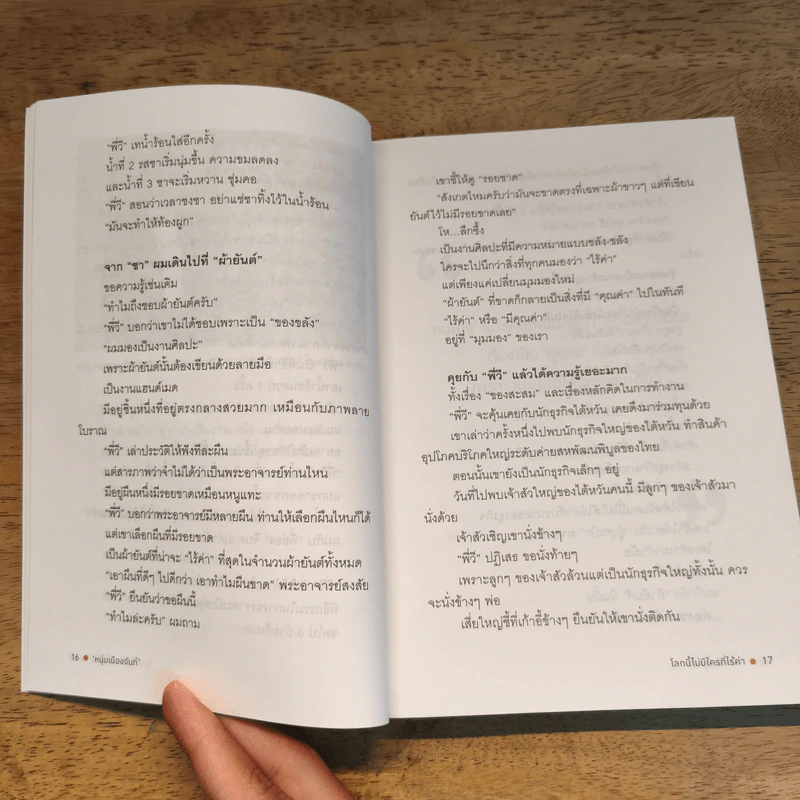 “พี่วี” เทน้ำร้อนใส่อีกครั้ง
น้ำที่ 2 รสชาเริ่มนุ่มขึ้น ความขมลดลง
และน้ำที่ 3 ชาจะเริ่มหวาน ชุ่มคอ
“พี่วี” สอนว่าเวลาชงชา อย่าแช่ชาทิ้งไว้ในน้ำร้อน
“มันจะทำให้ท้องผูก”
จาก “ชา” ผมเดินไปที่ “ผ้ายันต์”
ขอความรู้เช่นเดิม
“ทำไมถึงชอบผ้ายันต์ครับ”
“พี่วี” บอกว่าเขาไม่ได้ชอบเพราะเป็น “ของขลัง”
“ผมมองเป็นงานศิลปะ”
เพราะผ้ายันต์นั้นต้องเขียนด้วยลายมือ
เป็นงานแฮนด์เมด
มีอยู่ชิ้นหนึ่งที่อยู่ตรงกลางสวยมาก เหมือนกับภาพลาย
โบราณ
“พี่วี” เล่าประวัติให้ฟังทีละผืน
แต่สารภาพว่าจำไม่ได้ว่าเป็นพระอาจารย์ท่านไหน
มีอยู่ผืนหนึ่งมีรอยขาดเหมือนหนูแทะ
“พี่วี” บอกว่าพระอาจารย์มีหลายผืน ท่านให้เลือกผืนไหนก็ได้
แต่เขาเลือกผืนที่มีรอยขาด
เป็นผ้ายันต์ที่น่าจะ “ไร้ค่า” ที่สุดในจำนวนผ้ายันต์ทั้งหมด
“เอาผืนที่ดีๆ ไปดีกว่า เอาทำไมผืนขาด” พระอาจารย์สงสัย
“พี่วี” ยืนยันว่าขอผืนนี้
“ทำไมล่ะครับ” ผมถาม
16 • ‘หนุ่มเมืองจันท์’
เขาชี้ให้ดู “รอยขาด”
“สังเกตไหมครับว่ามันจะขาดตรงที่เฉพาะผ้าขาวๆ แต่ที่เขียน
ยันต์ไว้ไม่มีรอยขาดเลย”
โห...ลึกซึ้ง
เป็นงานศิลปะที่มีความหมายแบบขลัง-ขลัง
ใครจะไปนึกว่าสิ่งที่ทุกคนมองว่า “ไร้ค่า”
แต่เพียงแค่เปลี่ยนมุมมองใหม่
“ผ้ายันต์” ที่ขาดก็กลายเป็นสิ่งที่มี “คุณค่า” ไปในทันที
“ไร้ค่า” หรือ “มีคุณค่า”
อยู่ที่ “มุมมอง” ของเรา
คุยกับ “พี่วี” แล้วได้ความรู้เยอะมาก
ทั้งเรื่อง “ของสะสม” และเรื่องหลักคิดในการทำงาน
“พี่วี” จะคุ้นเคยกับนักธุรกิจไต้หวัน เคยดึงมาร่วมทุนด้วย
เขาเล่าว่าครั้งหนึ่งไปพบนักธุรกิจใหญ่ของไต้หวัน ทำสินค้า
อุปโภคบริโภคใหญ่ระดับค่ายสหพัฒนพิบูลของไทย
ตอนนั้นเขายังเป็นนักธุรกิจเล็กๆ อยู่
วันที่ไปพบเจ้าสัวใหญ่ของไต้หวันคนนี้ มีลูกๆ ของเจ้าสัวมา
นั่งด้วย
เจ้าสัวเชิญเขานั่งข้างๆ
“พี่วี” ปฏิเสธ ขอนั่งท้ายๆ
เพราะลูกๆ ของเจ้าสัวล้วนแต่เป็นนักธุรกิจใหญ่ทั้งนั้น ควร
จะนั่งข้างๆ พ่อ
เสี่ยใหญ่ชี้ที่เก้าอี้ข้างๆ ยืนยันให้เขานั่งติดกัน
โลกนี้ไม่มีใครที่ไร้ค่า • 17